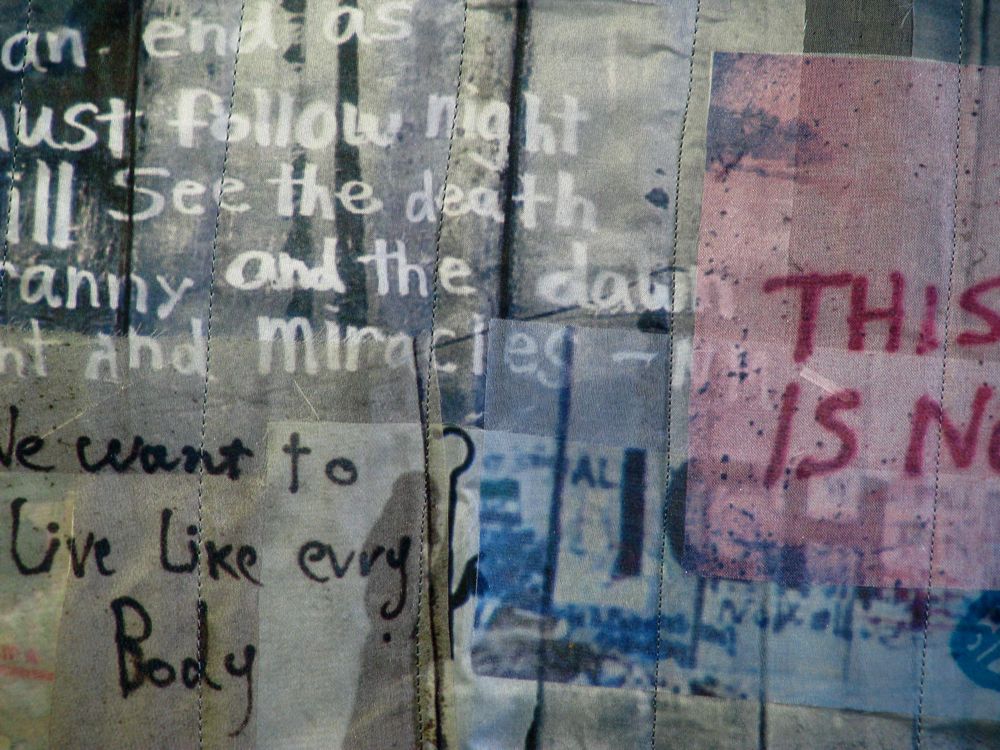 an. end as
ust follow night
ill See the death
ranny and the dawn
nt and Miracles –
We want to
Live Like evry
Body
AL
THIS
IS NO